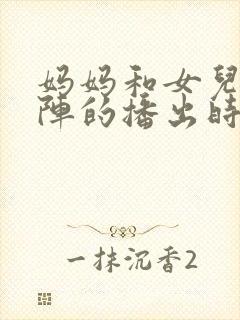 妈妈和女兒
陣的播出時
一抹沉香2